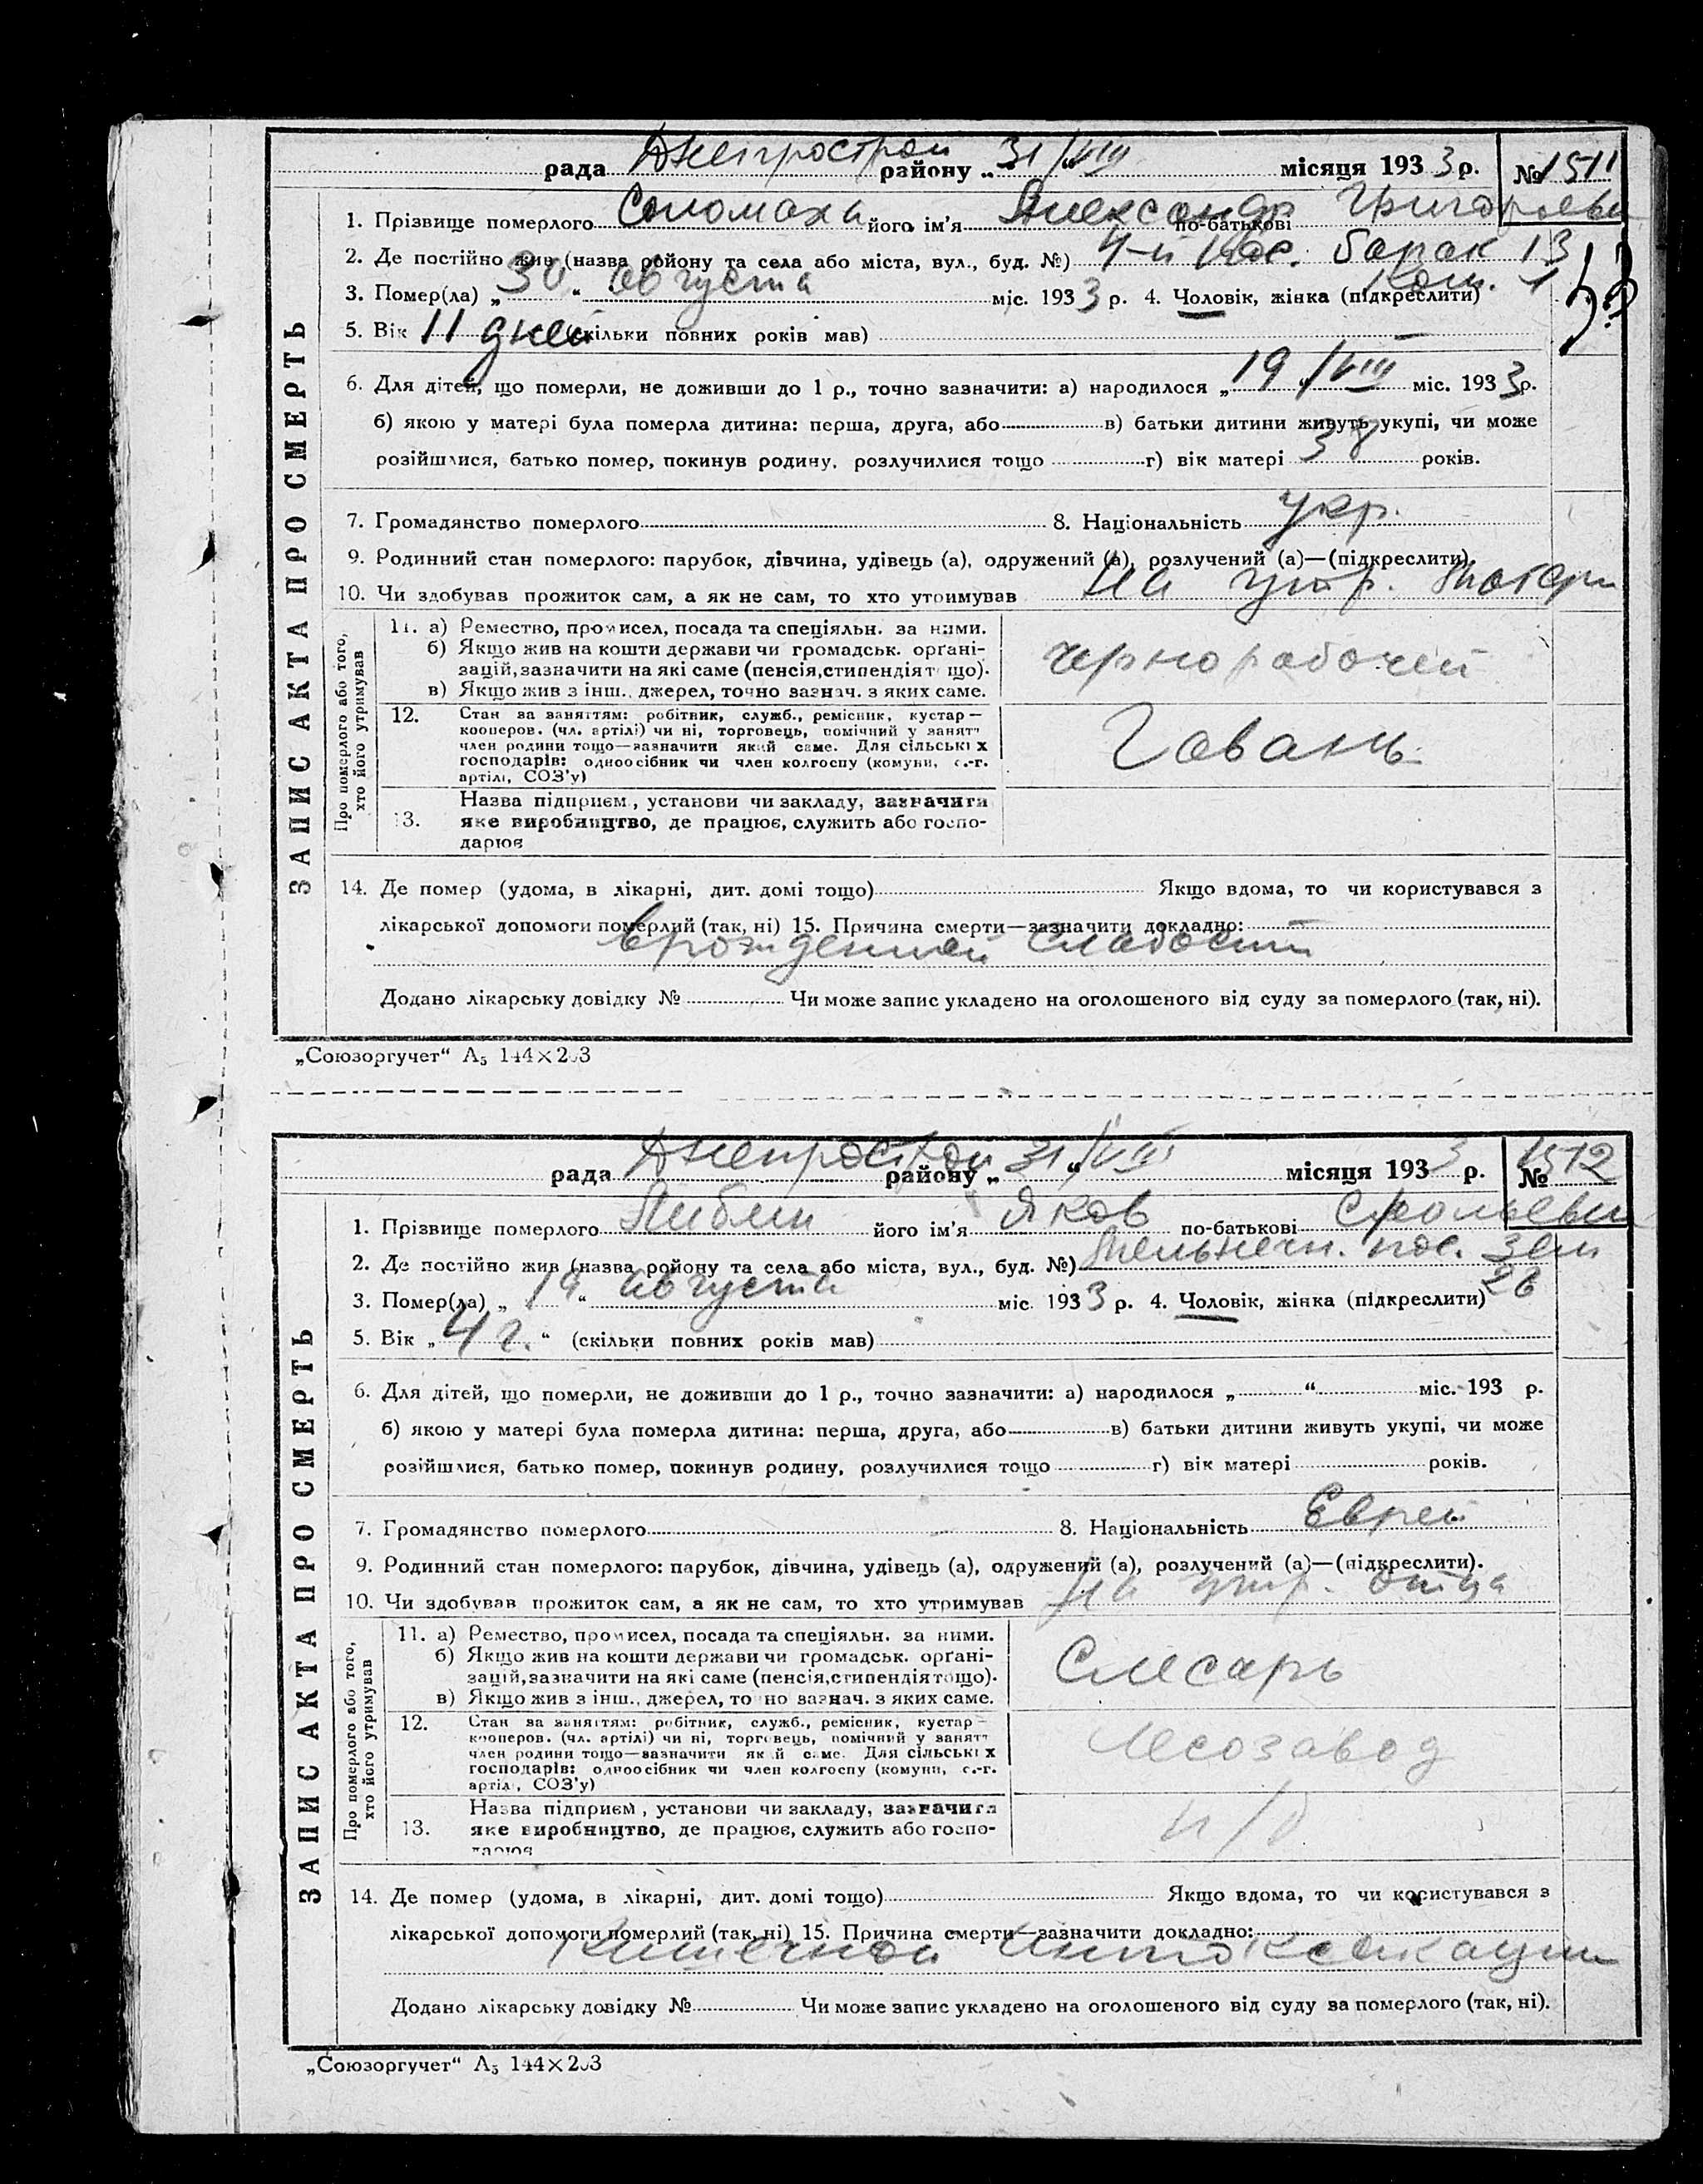 рада Днепрострой району „ 31/VIII “ місяця 1933 р. № 1511
1. Прізвище померлого Соломаха його ім'я Александр по-батькові Григорьеви
2. Де постійно жив (назва району та села або міста, вул., буд. №) 4-й пос. барак 13
ком. 1
3. Помер(ла) „ 30 “ августа міс. 1933 р. 4. Чоловік, жінка (підкреслити)
5. Вік 11 дней (скільки повних років мав)
6. Для дітей, що померли, не доживши до 1 р., точно зазначити: а) народилося „ 19/VIII міс. 1933 р.
б) якою у матері була померла дитина: перша, друга, або в) батьки дитини живуть укупі, чи може
розійшлися, батько помер, покинув родину, розлучилися тощо г) вік матері 38 років.
7. Громадянство померлого 8. Національність укр.
9. Родинний стан померлого: парубок, дівчина, удівець (а), одружений (а), розлучений (а)—(підкреслити).
10. Чи здобував прожиток сам, а як не сам, то хто утримував На ижр. матери
ЗАПИС АКТА ПРО СМЕРТЬ
Про померлого або того, хто його утримував
11. а) Ремество, промисел, посада та спеціяльн. за ними.
б) Якщо жив на кошти держави чи громадськ. орґані-
зацій, зазначити на які саме (пенсія, стипендія тощо).
в) Якщо жив з інш. джерел, точно зазнач. з яких саме.
чернорабочей
12. Стан за заняттям: робітник, служб., ремісник, кустар—
кооперов. (чл. артілі) чи ні, торговець, помічний у занятт
член родини тощо—зазначити який саме. Для сільських
господарів: одноосібник чи член колгоспу (комуни, с.-г.
артілі, СОЗ'у)
Гавань
13. Назва підприєм., установи чи закладу, зазначити
яке виробництво, де працює, служить або госпо-
дарює
14. Де помер (удома, в лікарні, дит. домі тощо) Якщо вдома, то чи користувався з
лікарської допомоги померлий (так, ні) 15. Причина смерти—зазначити докладно:
врожденной слабости
Додано лікарську довідку № Чи може запис укладено на оголошеного від суду за померлого (так, ні).
„Союзоргучет“ А5 144×203
рада Днепрострой району „ 31/VIII “ місяця 1933 р. № 1512
1. Прізвище померлого Либлин його ім'я Яков по-батькові
2. Де постійно жив (назва району та села або міста, вул., буд. №) Мельнечн. пос. Зем
28
3. Помер(ла) „ 19 “ августа міс. 1933 р. 4. Чоловік, жінка (підкреслити)
5. Вік „ 4 г. “ (скільки повних років мав)
6. Для дітей, що померли, не доживши до 1 р., точно зазначити: а) народилося „ “ міс. 193 р.
б) якою у матері була померла дитина: перша, друга, або в) батьки дитини живуть укупі, чи може
розійшлися, батько помер, покинув родину, розлучилися тощо г) вік матері років.
7. Громадянство померлого 8. Національність Еврей
9. Родинний стан померлого: парубок, дівчина, удівець (а), одружений (а), розлучений (а)—(підкреслити).
10. Чи здобував прожиток сам, а як не сам, то хто утримував На ижр. отца
ЗАПИС АКТА ПРО СМЕРТЬ
Про померлого або того, хто його утримував
11. а) Ремество, промисел, посада та спеціяльн. за ними.
б) Якщо жив на кошти держави чи громадськ. орґані-
зацій, зазначити на які саме (пенсія, стипендія тощо).
в) Якщо жив з інш. джерел, точно зазнач. з яких саме.
Слесарь
12. Стан за заняттям: робітник, служб., ремісник, кустар—
кооперов. (чл. артілі) чи ні, торговець, помічний у занятт
член родини тощо—зазначити який саме. Для сільських
господарів: одноосібник чи член колгоспу (комуни, с.-г.
артілі, СОЗ'у)
Лесозавод
13. Назва підприєм., установи чи закладу, зазначити
яке виробництво, де працює, служить або госпо-
дарює
14. Де помер (удома, в лікарні, дит. домі тощо) Якщо вдома, то чи користувався з
лікарської допомоги померлий (так, ні) 15. Причина смерти—зазначити докладно:
Кишечной интоксикации
Додано лікарську довідку № Чи може запис укладено на оголошеного від суду за померлого (так, ні).
„Союзоргучет“ А5 144×203